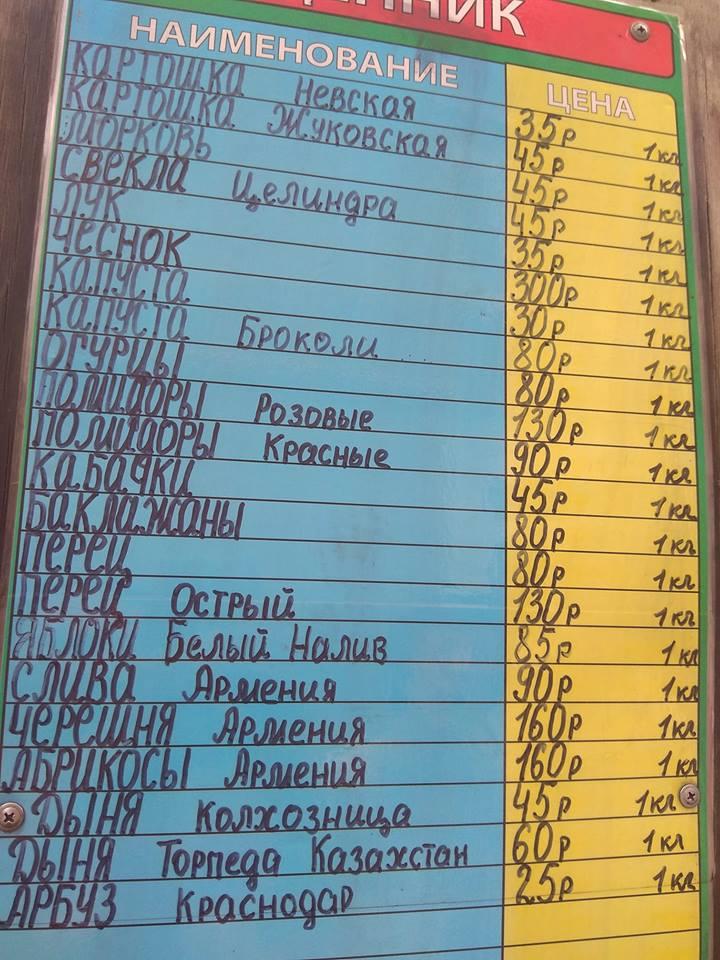 ЦЕННИК
НАИМЕНОВАНИЕ ЦЕНА
КАРТОШКА Невская 35р 1кг
КАРТОШКА Жуковская 45р 1кг
МОРКОВЬ 45р 1кг
СВЕКЛА Целиндра 45р 1кг
ЛУК 35р 1кг
ЧЕСНОК 300р 1кг
КАПУСТА 30р 1кг
КАПУСТА Броколи 80р 1кг
ОГУРЦЫ 80р 1кг
ПОМИДОРЫ Розовые 130р 1кг
ПОМИДОРЫ Красные 90р 1кг
КАБАЧКИ 45р 1кг
БАКЛАЖАНЫ 80р 1кг
ПЕРЕЦ 80р 1кг
ПЕРЕЦ Острый 130р 1кг
ЯБЛОКИ Белый Налив 85р 1кг
СЛИВА Армения 90р 1кг
ЧЕРЕШНЯ Армения 160р 1кг
АБРИКОСЫ Армения 160р 1кг
ДЫНЯ Колхозница 45р 1кг
ДЫНЯ Торпеда Казахстан 60р 1кг
АРБУЗ Краснодар 25р 1кг